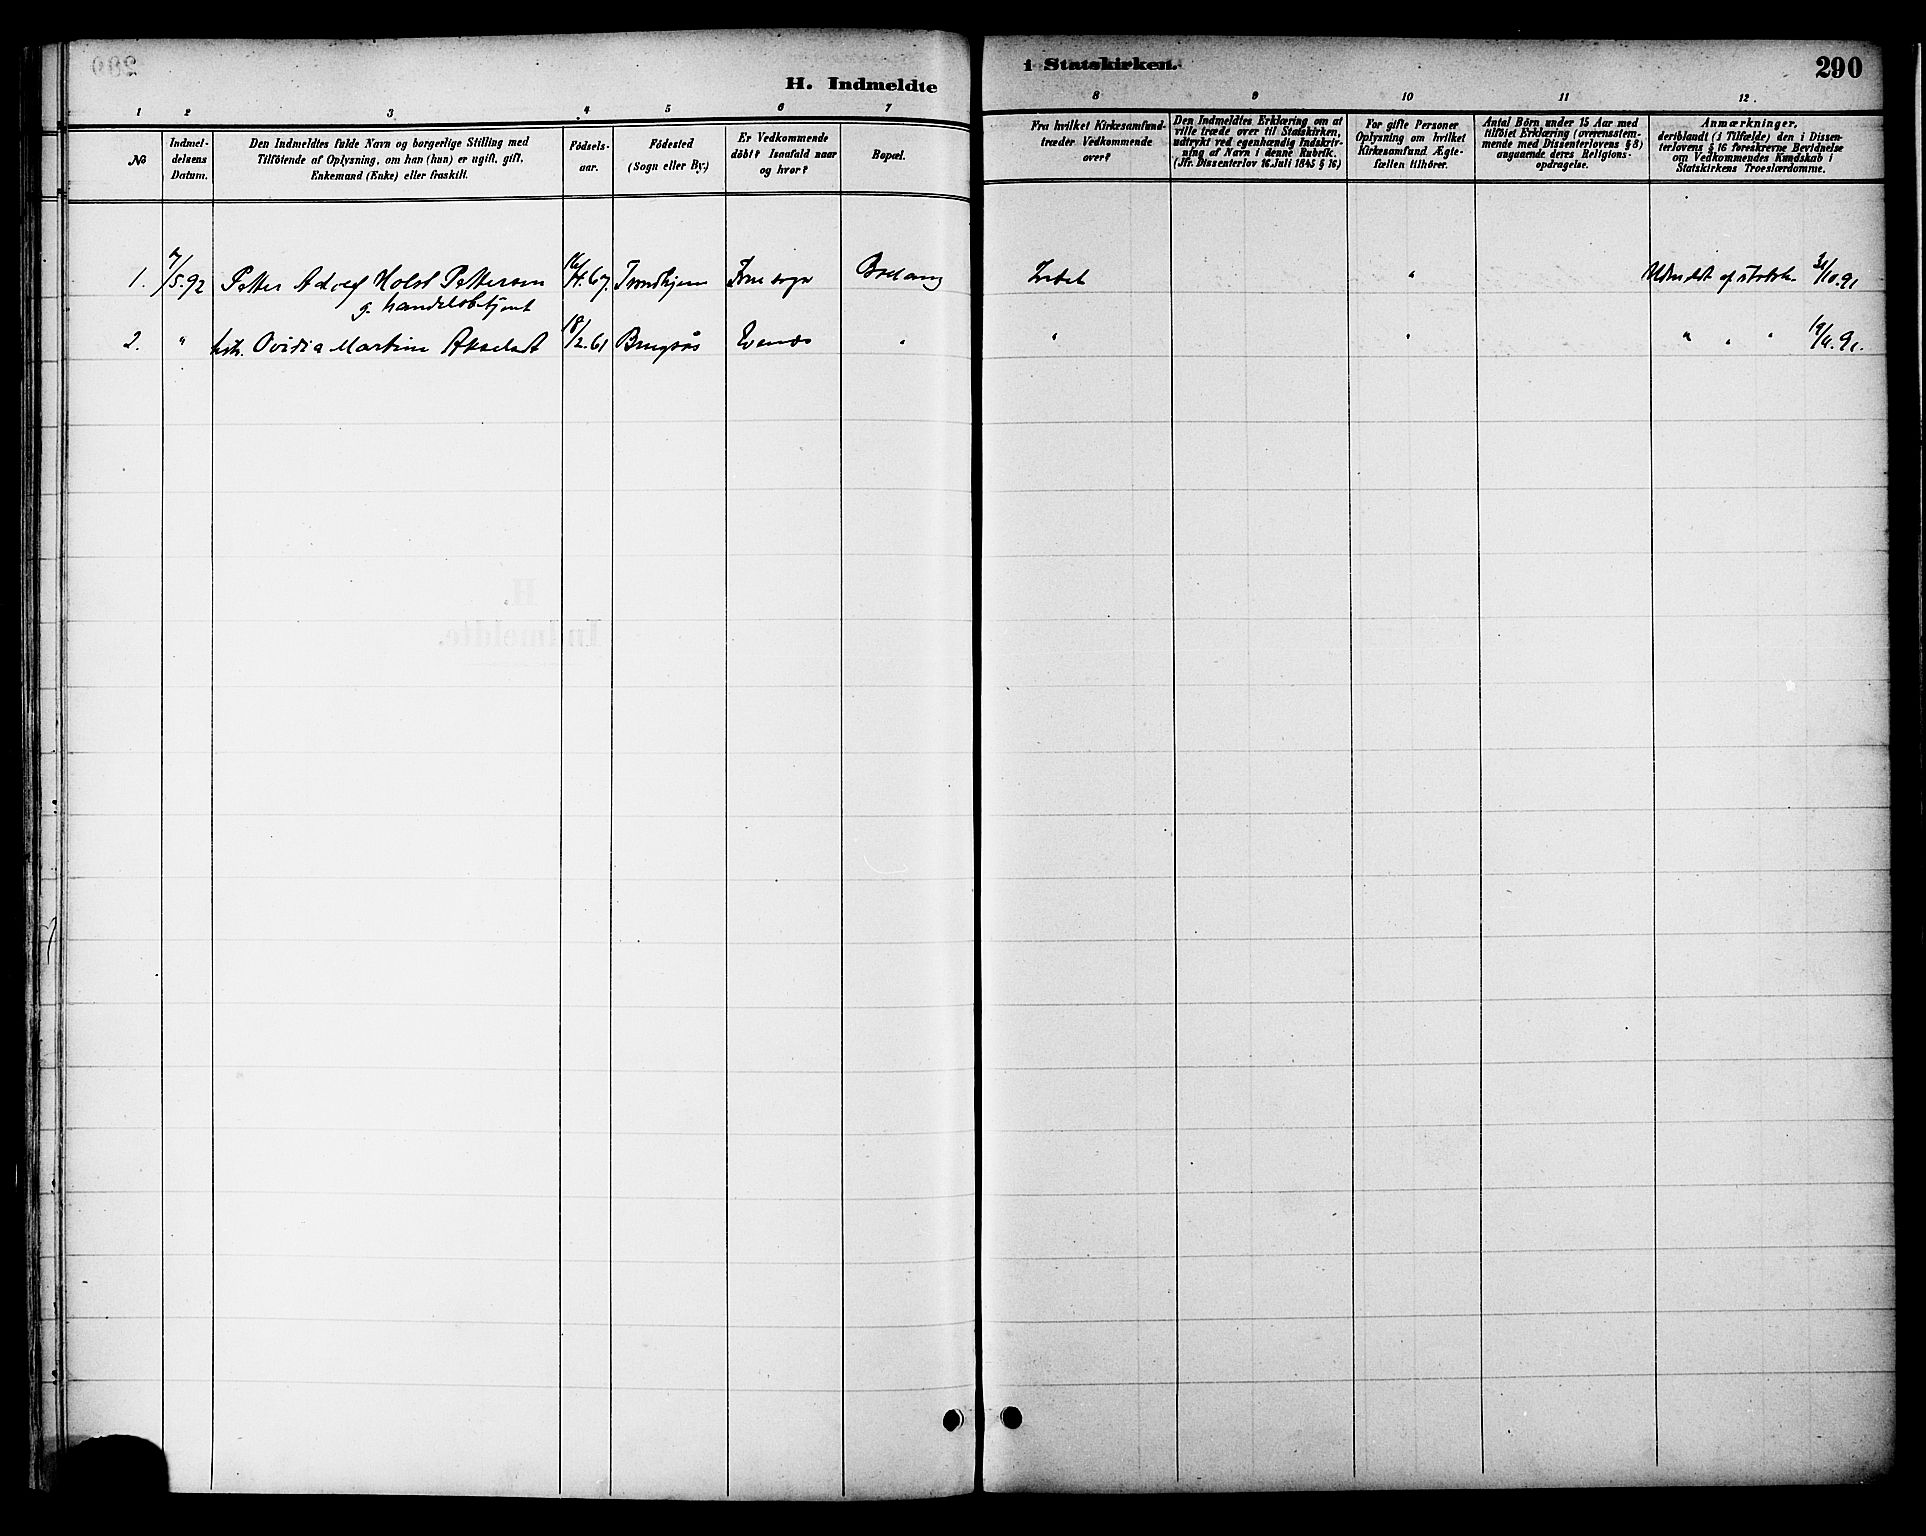 H. Indmeldte
i Statskirken.
290
1 2 3 4 5 6 7 8 9 10 11 12.
No
Indmel-
delsens
Datum.
Den Indmeldtes fulde Navn og borgerlige Stilling med
Tilföiende af Oplysning, om han (hun) er ugift, gift,
Enkemand (Enke) eller fraskilt.
Födsels-
aar.
Födested
(Sogn eller By.)
Er Vedkommende
döbt? Isaafald naar
og hvor?
Bopæl.
Fra hvilket Kirkesamfund
træder Vedkommende
over?
Den Indmeldtes Erklæring om at
ville træde over til Statskirken,
udtrykt ved egenhændig Indskriv-
ning af Navn i denne Rubrik.
(Jfr. Dissenterlov 16. Juli 1845 § 16)
For gifte Personer
Oplysning om hvilket
Kirkesamfund Ægte-
fællen tilhörer.
Antal Börn under 15 Aar med
tilföiet Erklæring (overensstem-
mende med Dissenterlovens § 8)
angaaende deres Religions-
opdragelse.
Anmærkninger,
deriblandt (i Tilfælde) den i Dissen-
terlovens § 16 foreskrevne Bevidnelse
om Vedkommendes Kundskab i
Statskirkens Troeslærdomme.
1. 7/5.92 Petter Adolf Holst Petterson 16/4.67. Trondhjem " 31/10.91
g. handelsbetjent
2. " hstr. Ovidia Martine 18/2.61 " " " " " " 19/4.91.